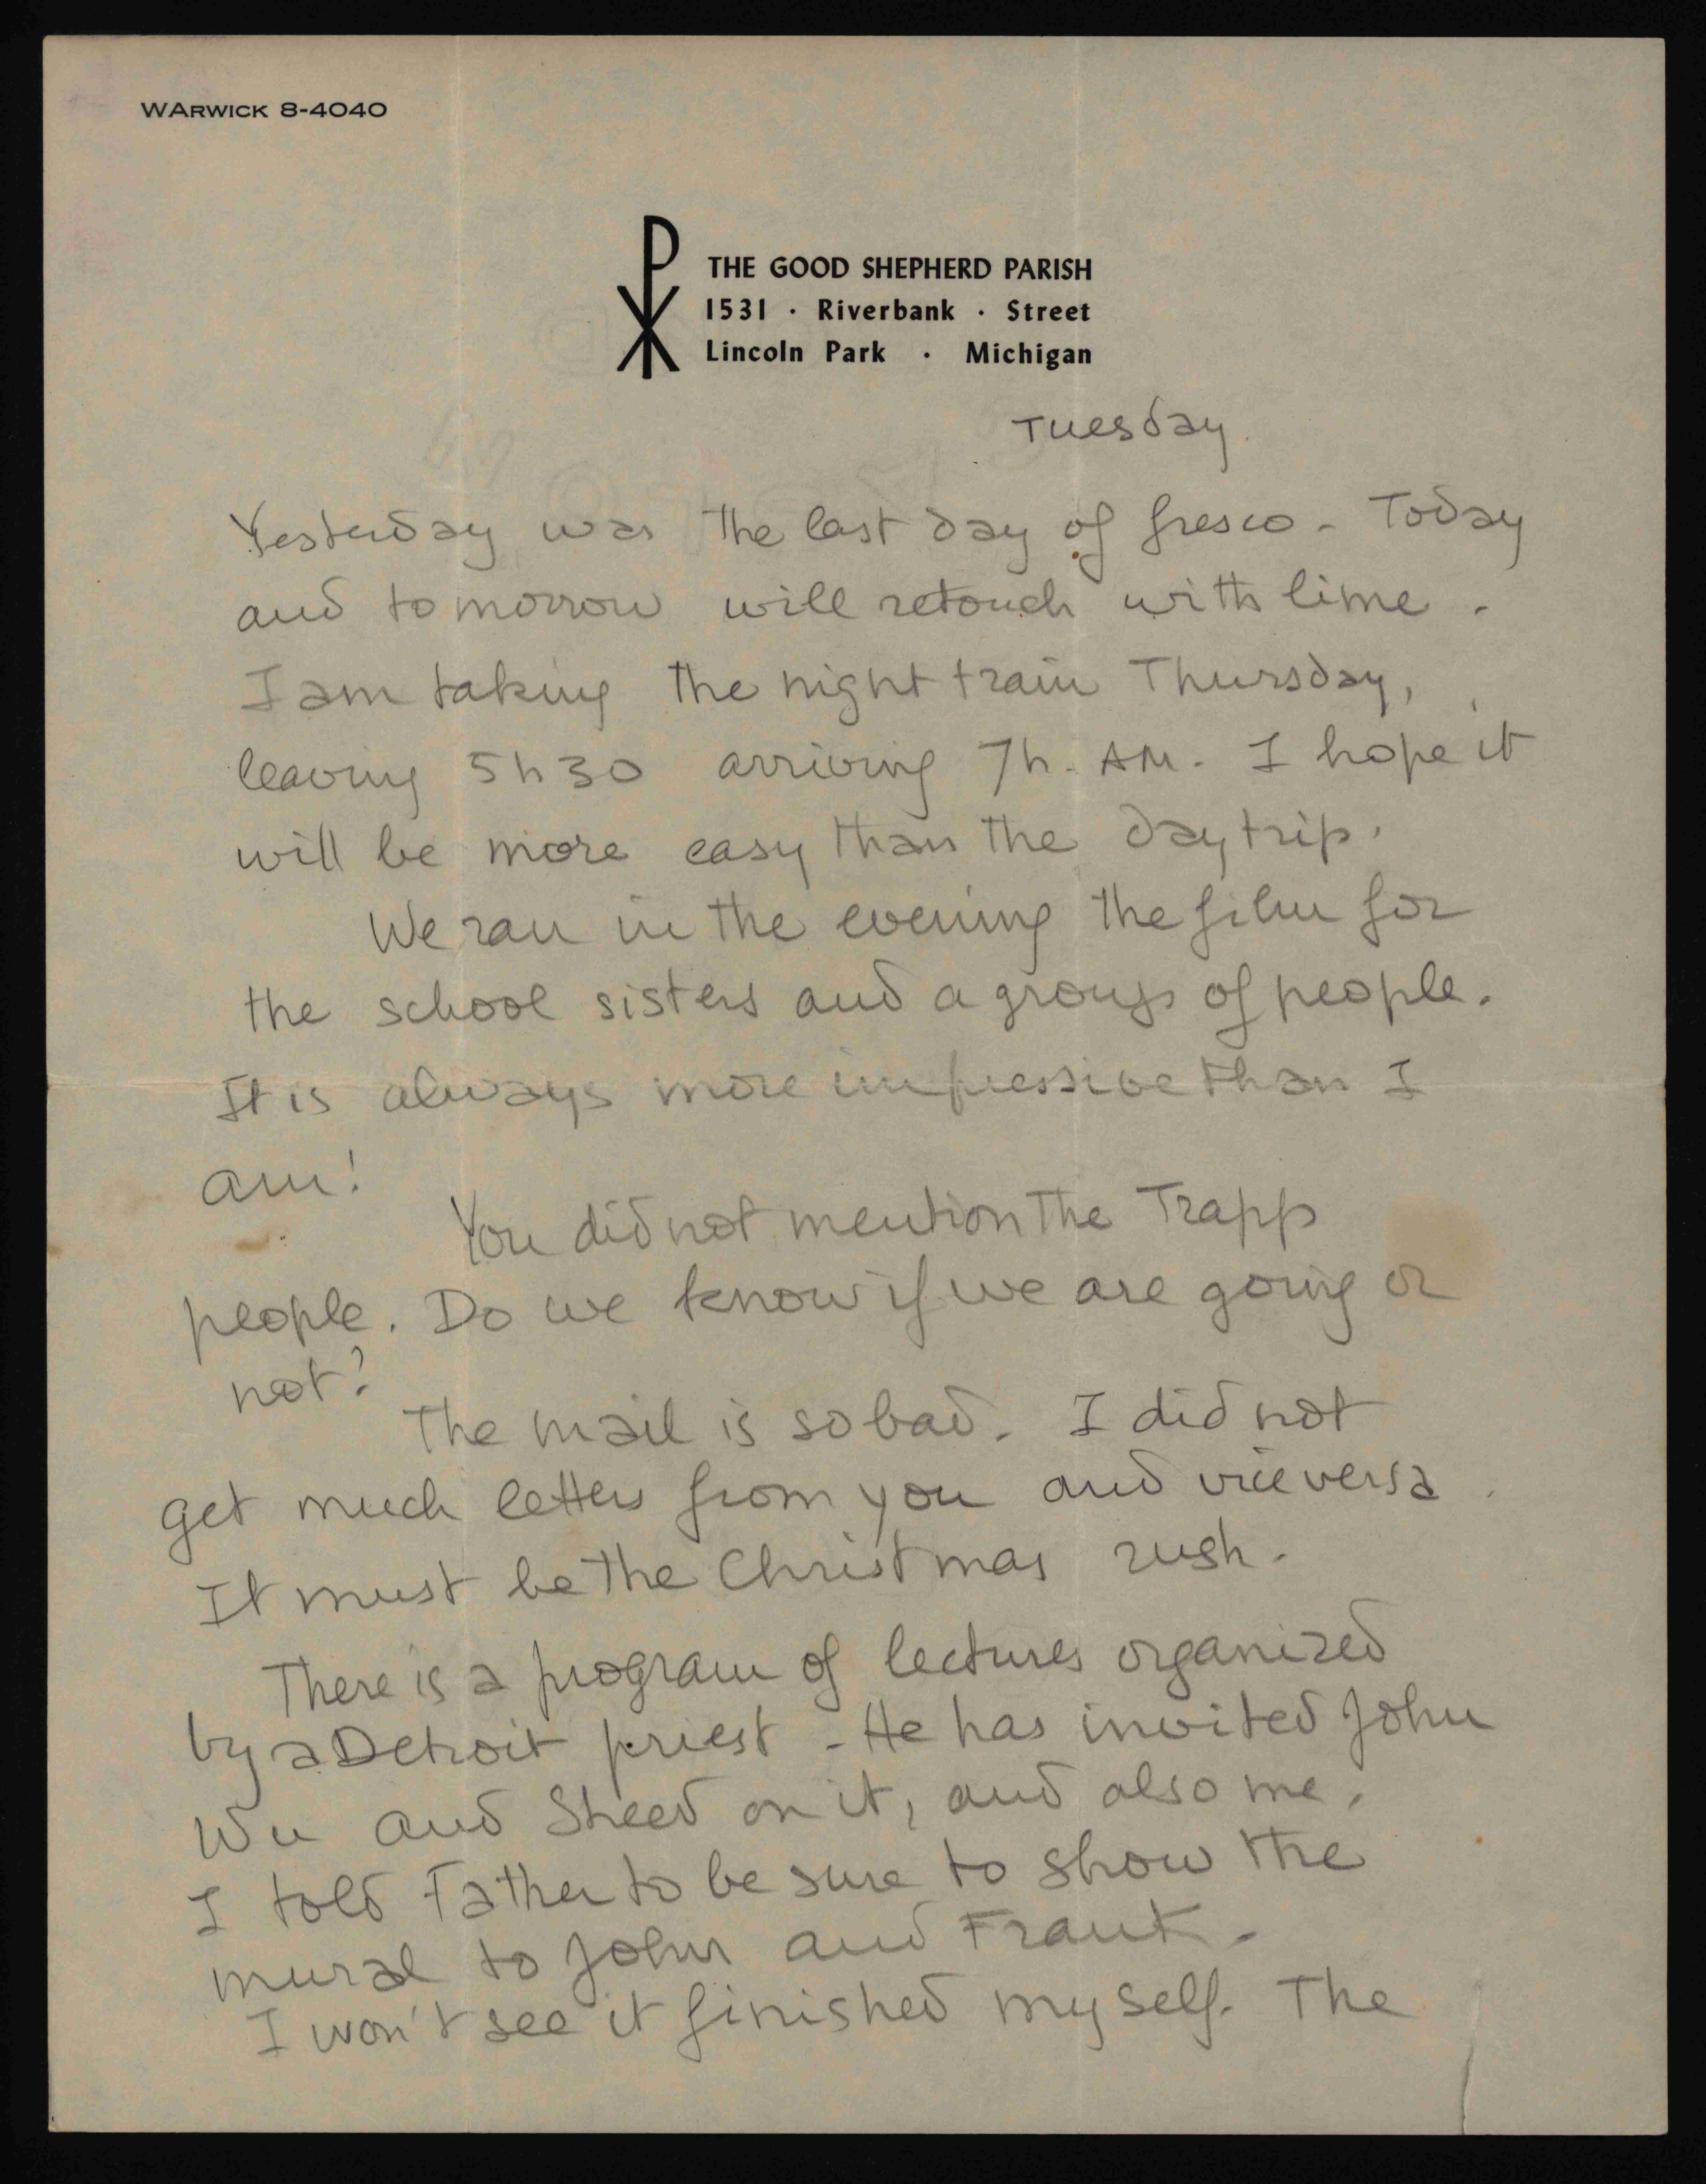 WARWICK 8-4040
THE GOOD SHEPHERD PARISH
1531 · Riverbank · Street
Lincoln Park · Michigan
Tuesday.
Yesterday was the last day of fresco - Today
and tomorrow will retouch with lime.
I am taking the night train Thursday,
leaving 5h30 arriving 7h. AM. I hope it
will be more easy than the day trip.
We ran in the evening the film for
the school sisters and a group of people.
It is always more impressive than I
am!
You did not mention the Trapp
people. Do we know if we are going or
not?
The mail is so bad. I did not
get much letters from you and vice versa.
It must be the Christmas rush.
There is a program of lectures organized
by a Detroit priest - He has invited John
Wu and Sheed on it, and also me.
I told Father to be sure to show the
mural to John and Frank.
I won't see it finished myself. The